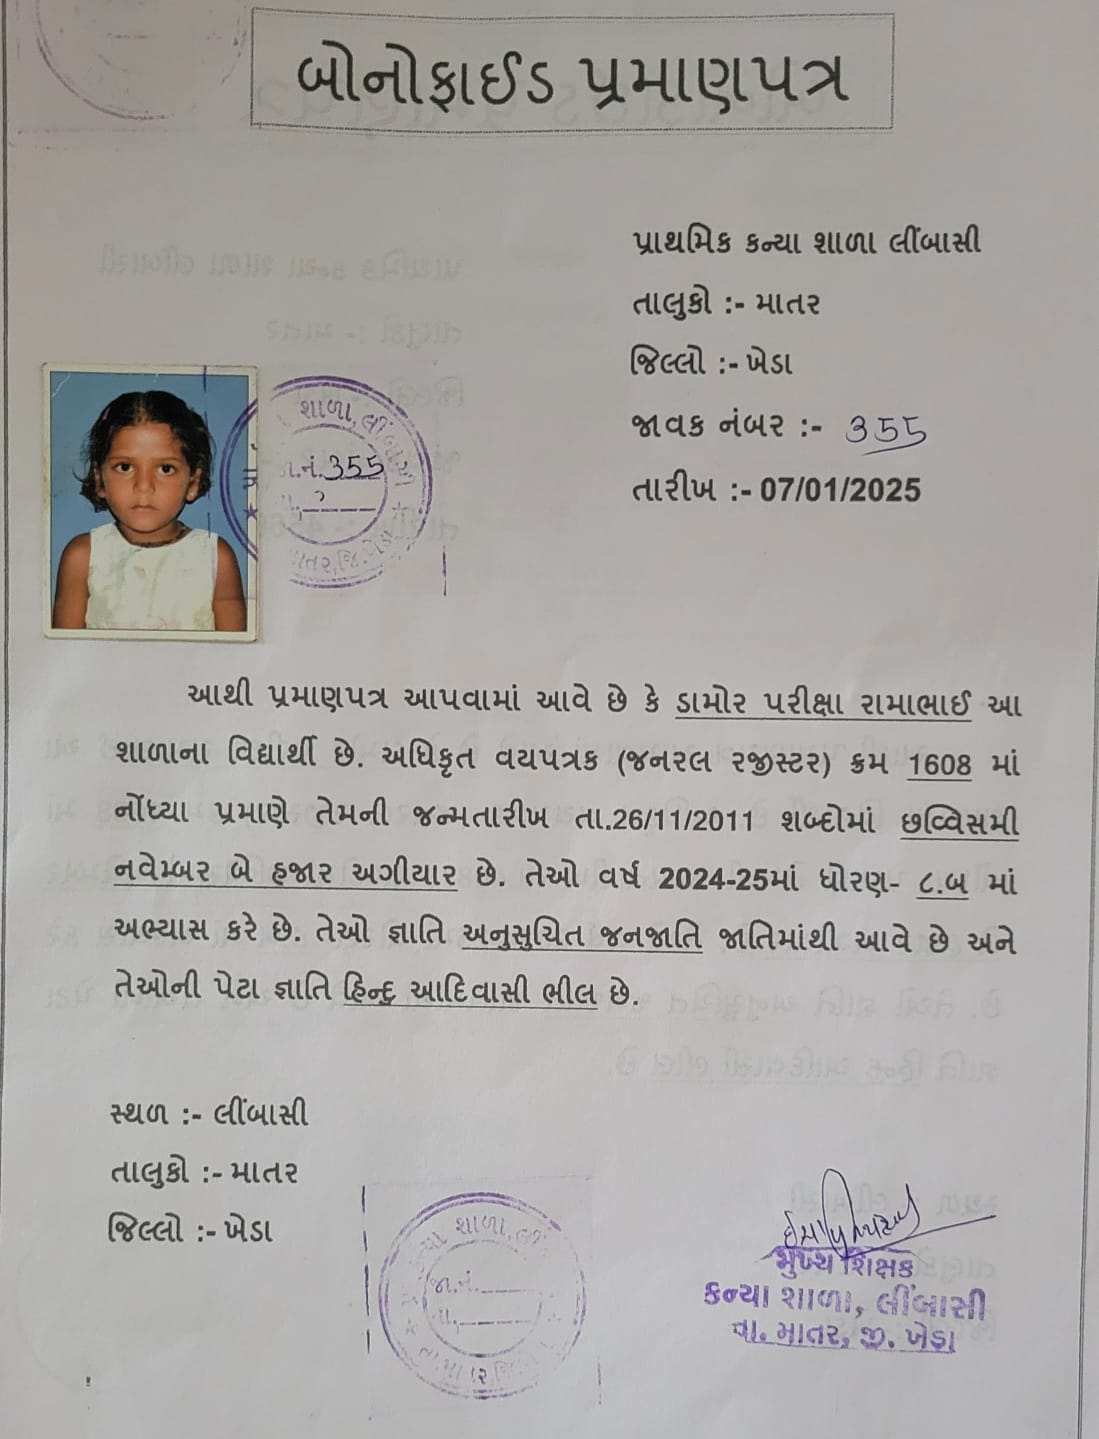 બોનોફાઈડ પ્રમાણપત્ર
પ્રાથમિક કન્યા શાળા લીંબાસી
તાલુકો :- માતર
જિલ્લો :- ખેડા
જાવક નંબર :- 355
તારીખ :- 07/01/2025
શાળા, લીંબાસી
જા.નં. 355
આથી પ્રમાણપત્ર આપવામાં આવે છે કે ડામોર પરીક્ષા રામાભાઈ આ
શાળાના વિદ્યાર્થી છે. અધિકૃત વયપત્રક (જનરલ રજીસ્ટર) ક્રમ 1608 માં
નોંધ્યા પ્રમાણે તેમની જન્મતારીખ તા.26/11/2011 શબ્દોમાં છવ્વિસમી
નવેમ્બર બે હજાર અગીયાર છે. તેઓ વર્ષ 2024-25માં ધોરણ- ૮.બ માં
અભ્યાસ કરે છે. તેઓ જ્ઞાતિ અનુસુચિત જનજાતિ જાતિમાંથી આવે છે અને
તેઓની પેટા જ્ઞાતિ હિન્દુ આદિવાસી ભીલ છે.
સ્થળ :- લીંબાસી
તાલુકો :- માતર
જિલ્લો :- ખેડા
કન્યા શાળા,
જા.નં.
મુખ્ય શિક્ષક
કન્યા શાળા, લીંબાસી
તા. માતર, જી. ખેડા